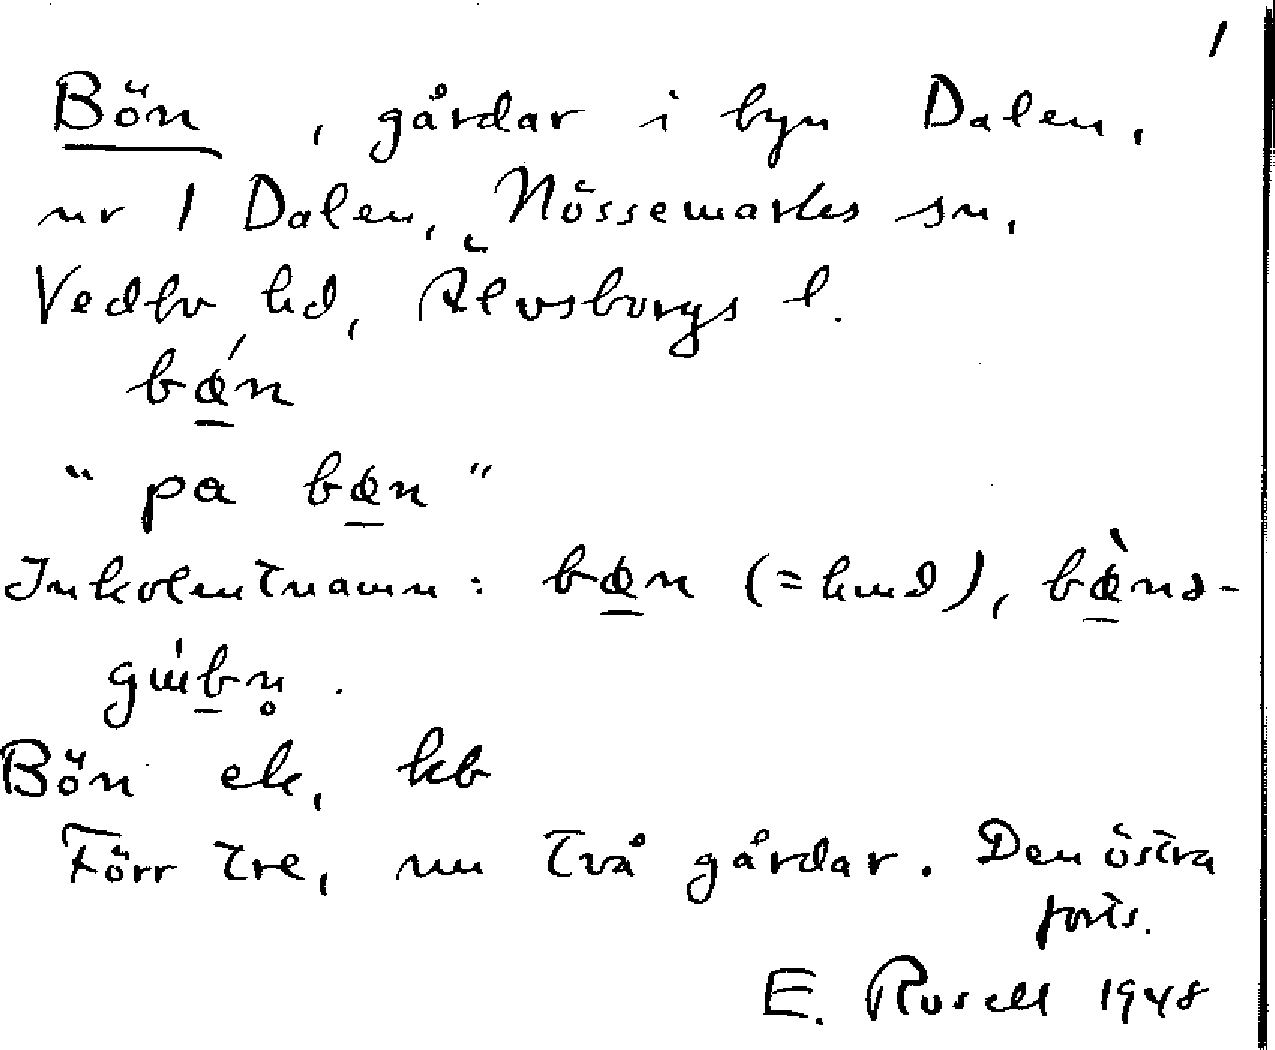 1
Bön, gårdar i byn Dalen,
nr 1 Dalen, Nössemarks sn,
Vedbo hd, Älvsborgs l.
bǿn
"pa bøn"
Inkolentnamn: bøn (=hmd), bø̀ns-
gúbn̥.
Bön ek, kb
Förr tre, nu två gårdar. Den östra
forts.
E. Rosell 1948